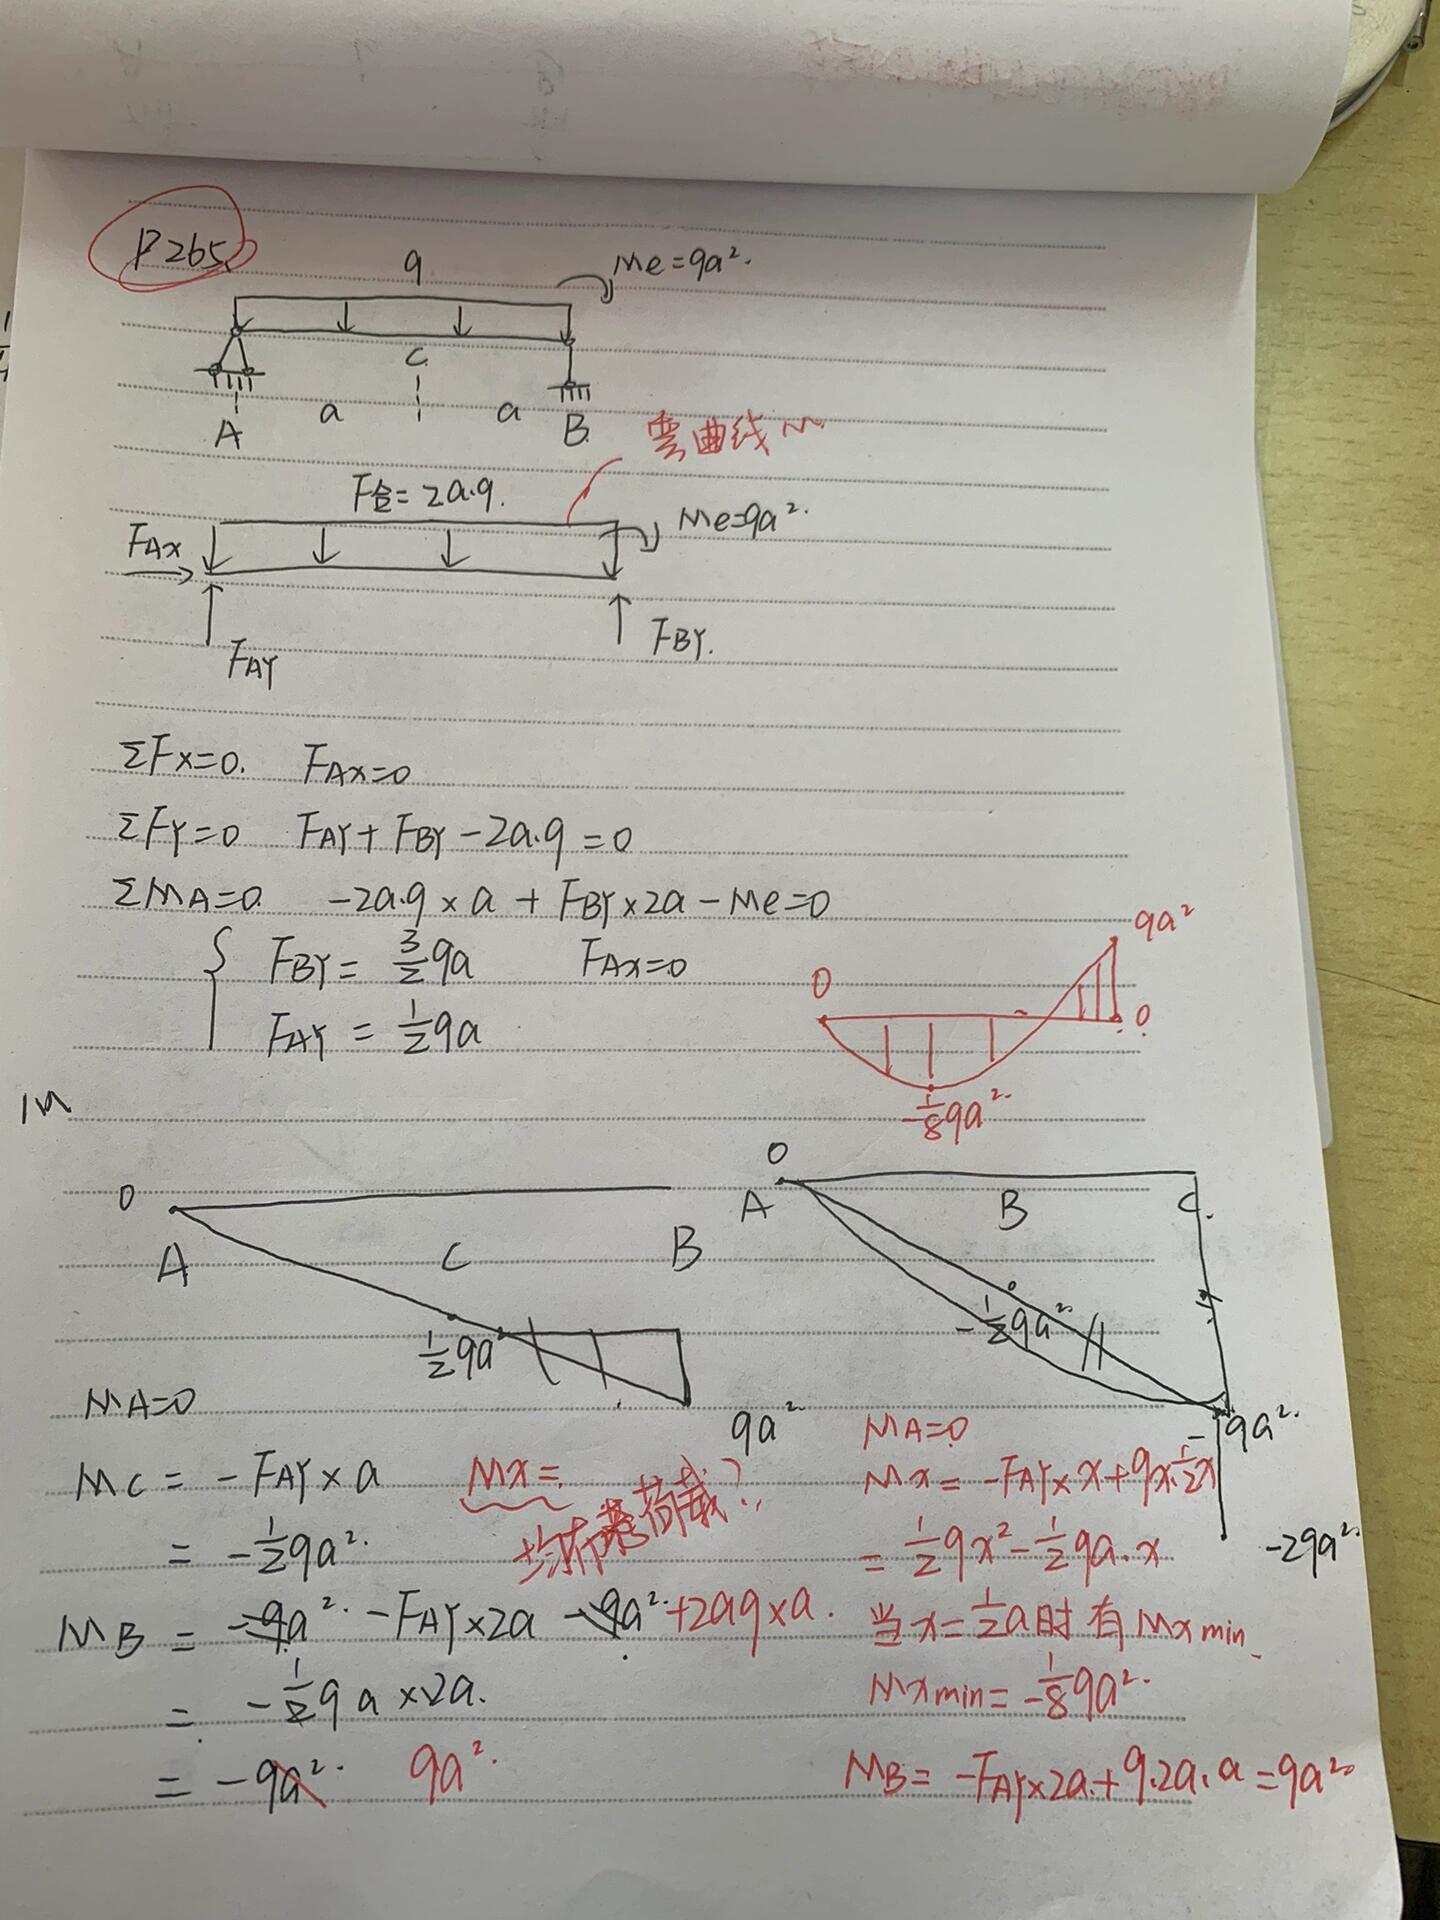 P265
q
Me=qa².
C
a
a
A
B.
弯曲线 M
F合=2a.q.
Me=qa².
FAx
FAY
FBY.
ΣFx=0. FAx=0
ΣFY=0 FAY+FBY-2a.q=0
ΣMA=0. -2a.q×a+FBY×2a-Me=0
FBY=3/2qa FAx=0
FAY=1/2qa
qa²
0
0.
-1/8qa².
M
0
A
C
B
1/2qa
qa²
0
A
B
C.
-1/2qa².
-qa².
-2qa².
MA=0
MC=-FAY×a
=-1/2qa².
Mx=
均布荷载?
MB=-qa².-FAY×2a-qa²+2aq×a.
=-1/2qa×2a.
=-qa². qa².
MA=0
Mx=-FAY×x+qx.1/2x
=1/2qx²-1/2qa.x
当x=1/2a时有Mxmin.
Mxmin=-1/8qa².
MB=-FAY×2a+q.2a.a=qa².